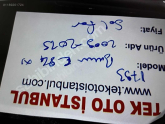 TEK OTO İSTANBUL
www.tekotoistanbul.com
1793
Model: Bmw E84 x1
Ürün Adı: 2009-2015
Fiyat: Sol far